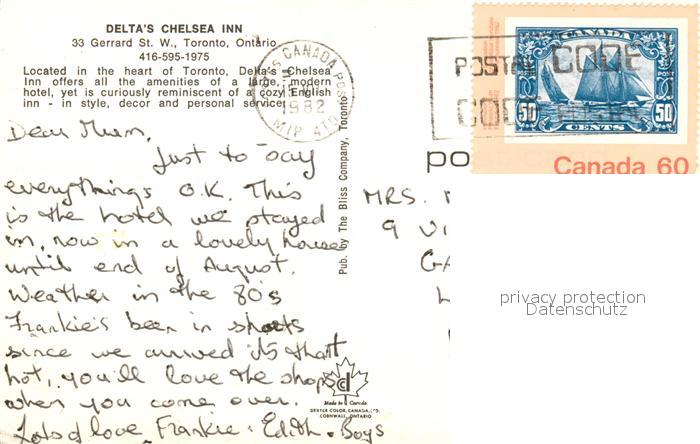 DELTA'S CHELSEA INN
33 Gerrard St. W., Toronto, Ontario
416-595-1975
Located in the heart of Toronto, Delta's Chelsea
Inn offers all the amenities of a large, modern
hotel, yet is curiously reminiscent of a cozy English
inn - in style, decor and personal service.
Dear Mum,
Just to say
everythings O.K. This
is the hotel we stayed
in, now in a lovely house
until end of August.
Weather in the 80's
Frankie's been in shorts
since we arrived its that
hot, you'll love the shops
when you come over.
Lots of love Frankie. Edith. Boys
CANADA
1982
M1P 4T0
Pub. by The Bliss Company, Toronto
Made in Canada
DEXTER COLOR, CANADA, LTD.
CORNWALL, ONTARIO
POSTAL CODE
CODE POSTAL
CANADA
50 CENTS 50
Canada 60
po
MRS.
9
privacy protection
Datenschutz